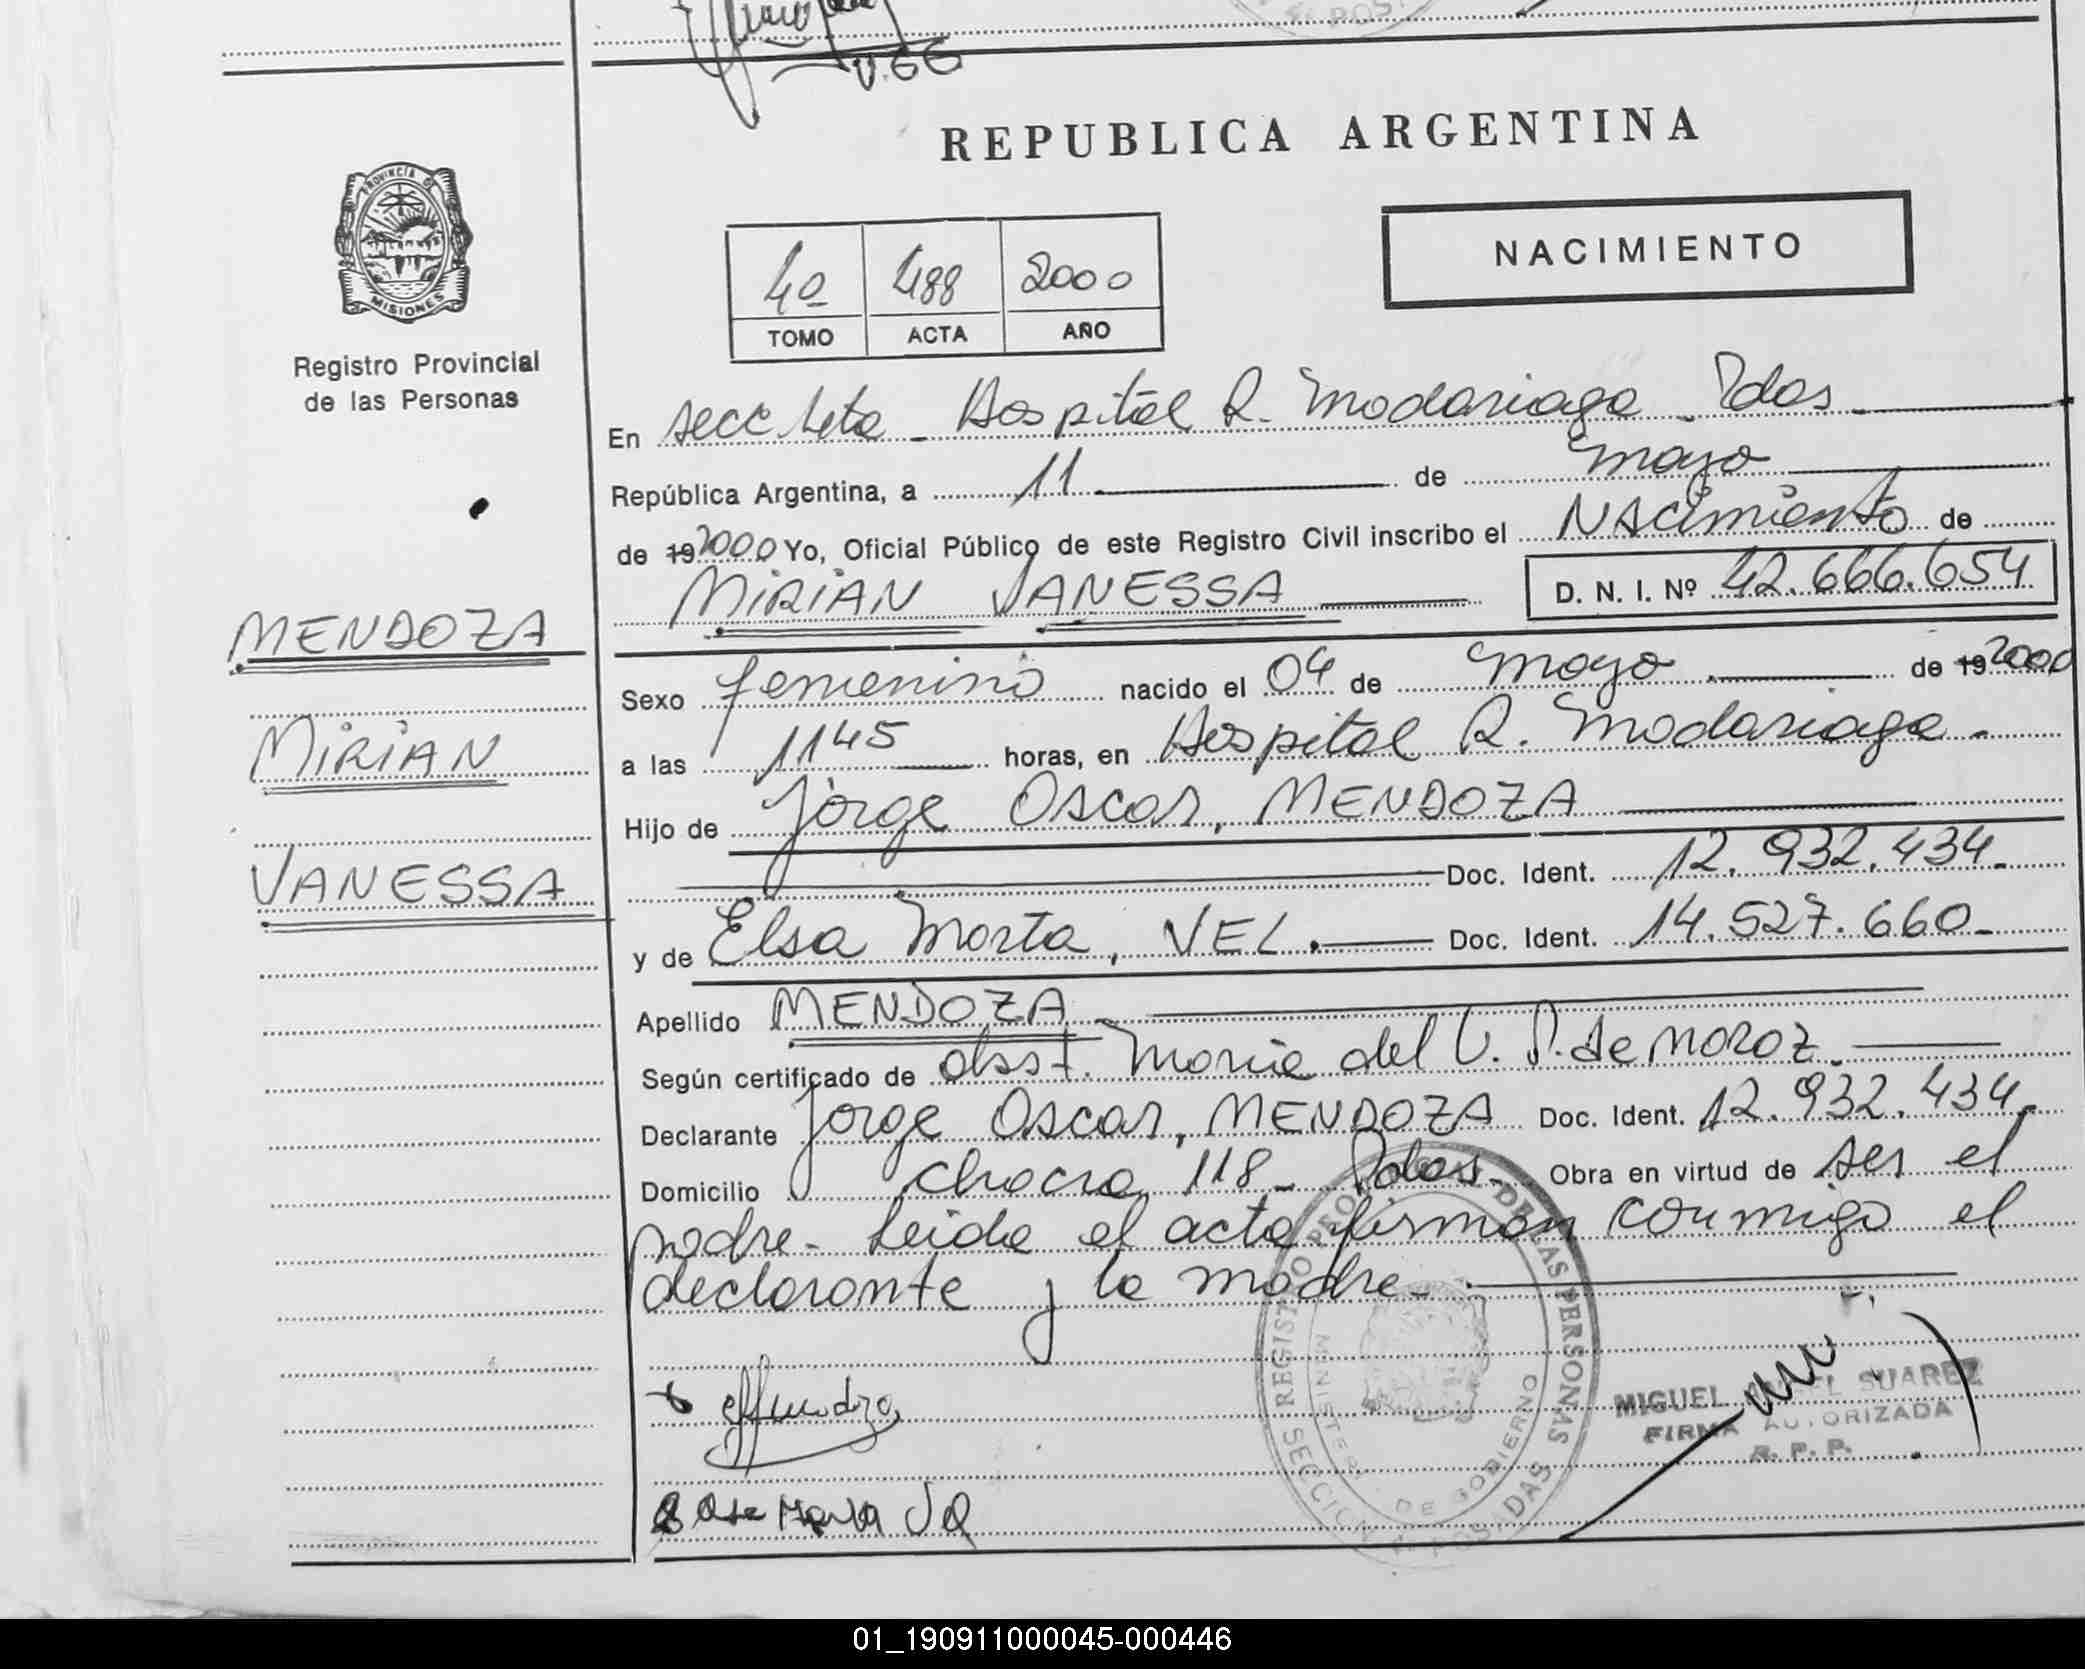 V.GG
EL POS
REPUBLICA ARGENTINA
PROVINCIA D
MISIONES
Registro Provincial
de las Personas
NACIMIENTO
4º 488 2000
TOMO ACTA AÑO
En Secc 4ta - Hospital R. Madariaga - Pdas.
República Argentina, a 11 de mayo
de 19 2000 Yo, Oficial Público de este Registro Civil inscribo el Nacimiento de
MIRIAN VANESSA D. N. I. Nº 42.666.654
MENDOZA
MIRIAN
VANESSA
Sexo femenino nacido el 04 de mayo de 19 2000
a las 1145 horas, en Hospital R. Madariaga -
Hijo de Jorge Oscar, MENDOZA
Doc. Ident. 12.932.434.
y de Elsa Marta, VEL. Doc. Ident. 14.527.660-
Apellido MENDOZA
Según certificado de obst. Maria del C. P. de MOROZ.
Declarante Jorge Oscar, MENDOZA Doc. Ident. 12.932.434.
Domicilio Chacra 118 - Pdas. Obra en virtud de ser el
padre - Leida el acta firman conmigo el
declarante y la madre -
REGISTRO PROVINCIAL DE LAS PERSONAS
MINISTERIO DE GOBIERNO
SECCION POSADAS
MIGUEL ANGEL SUAREZ
FIRMA AUTORIZADA
R. P. P.
01_190911000045-000446